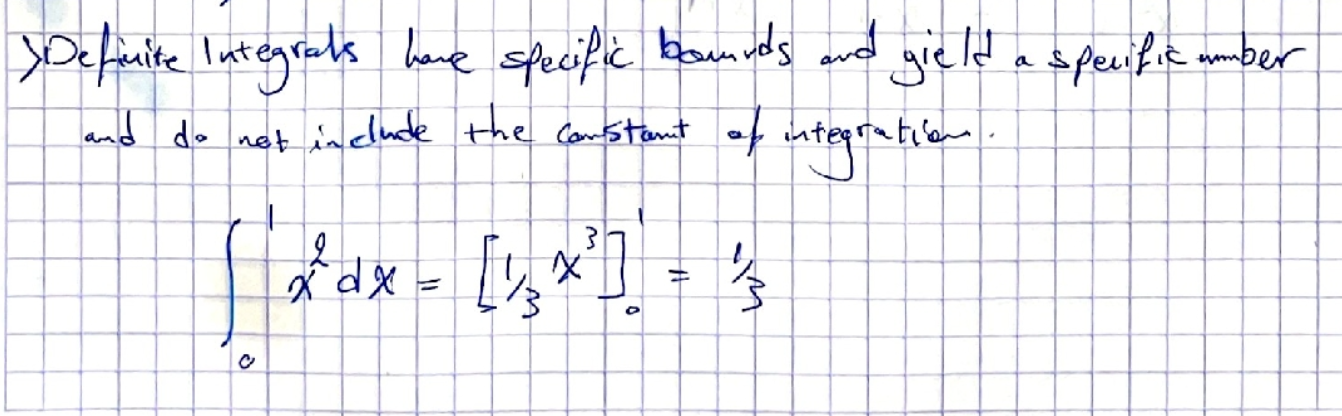 >Definite Integrals have specific bounds and yield a specific number
and do not include the constant of integration.
∫₀¹ x² dx = [1/3 x³]₀¹ = 1/3